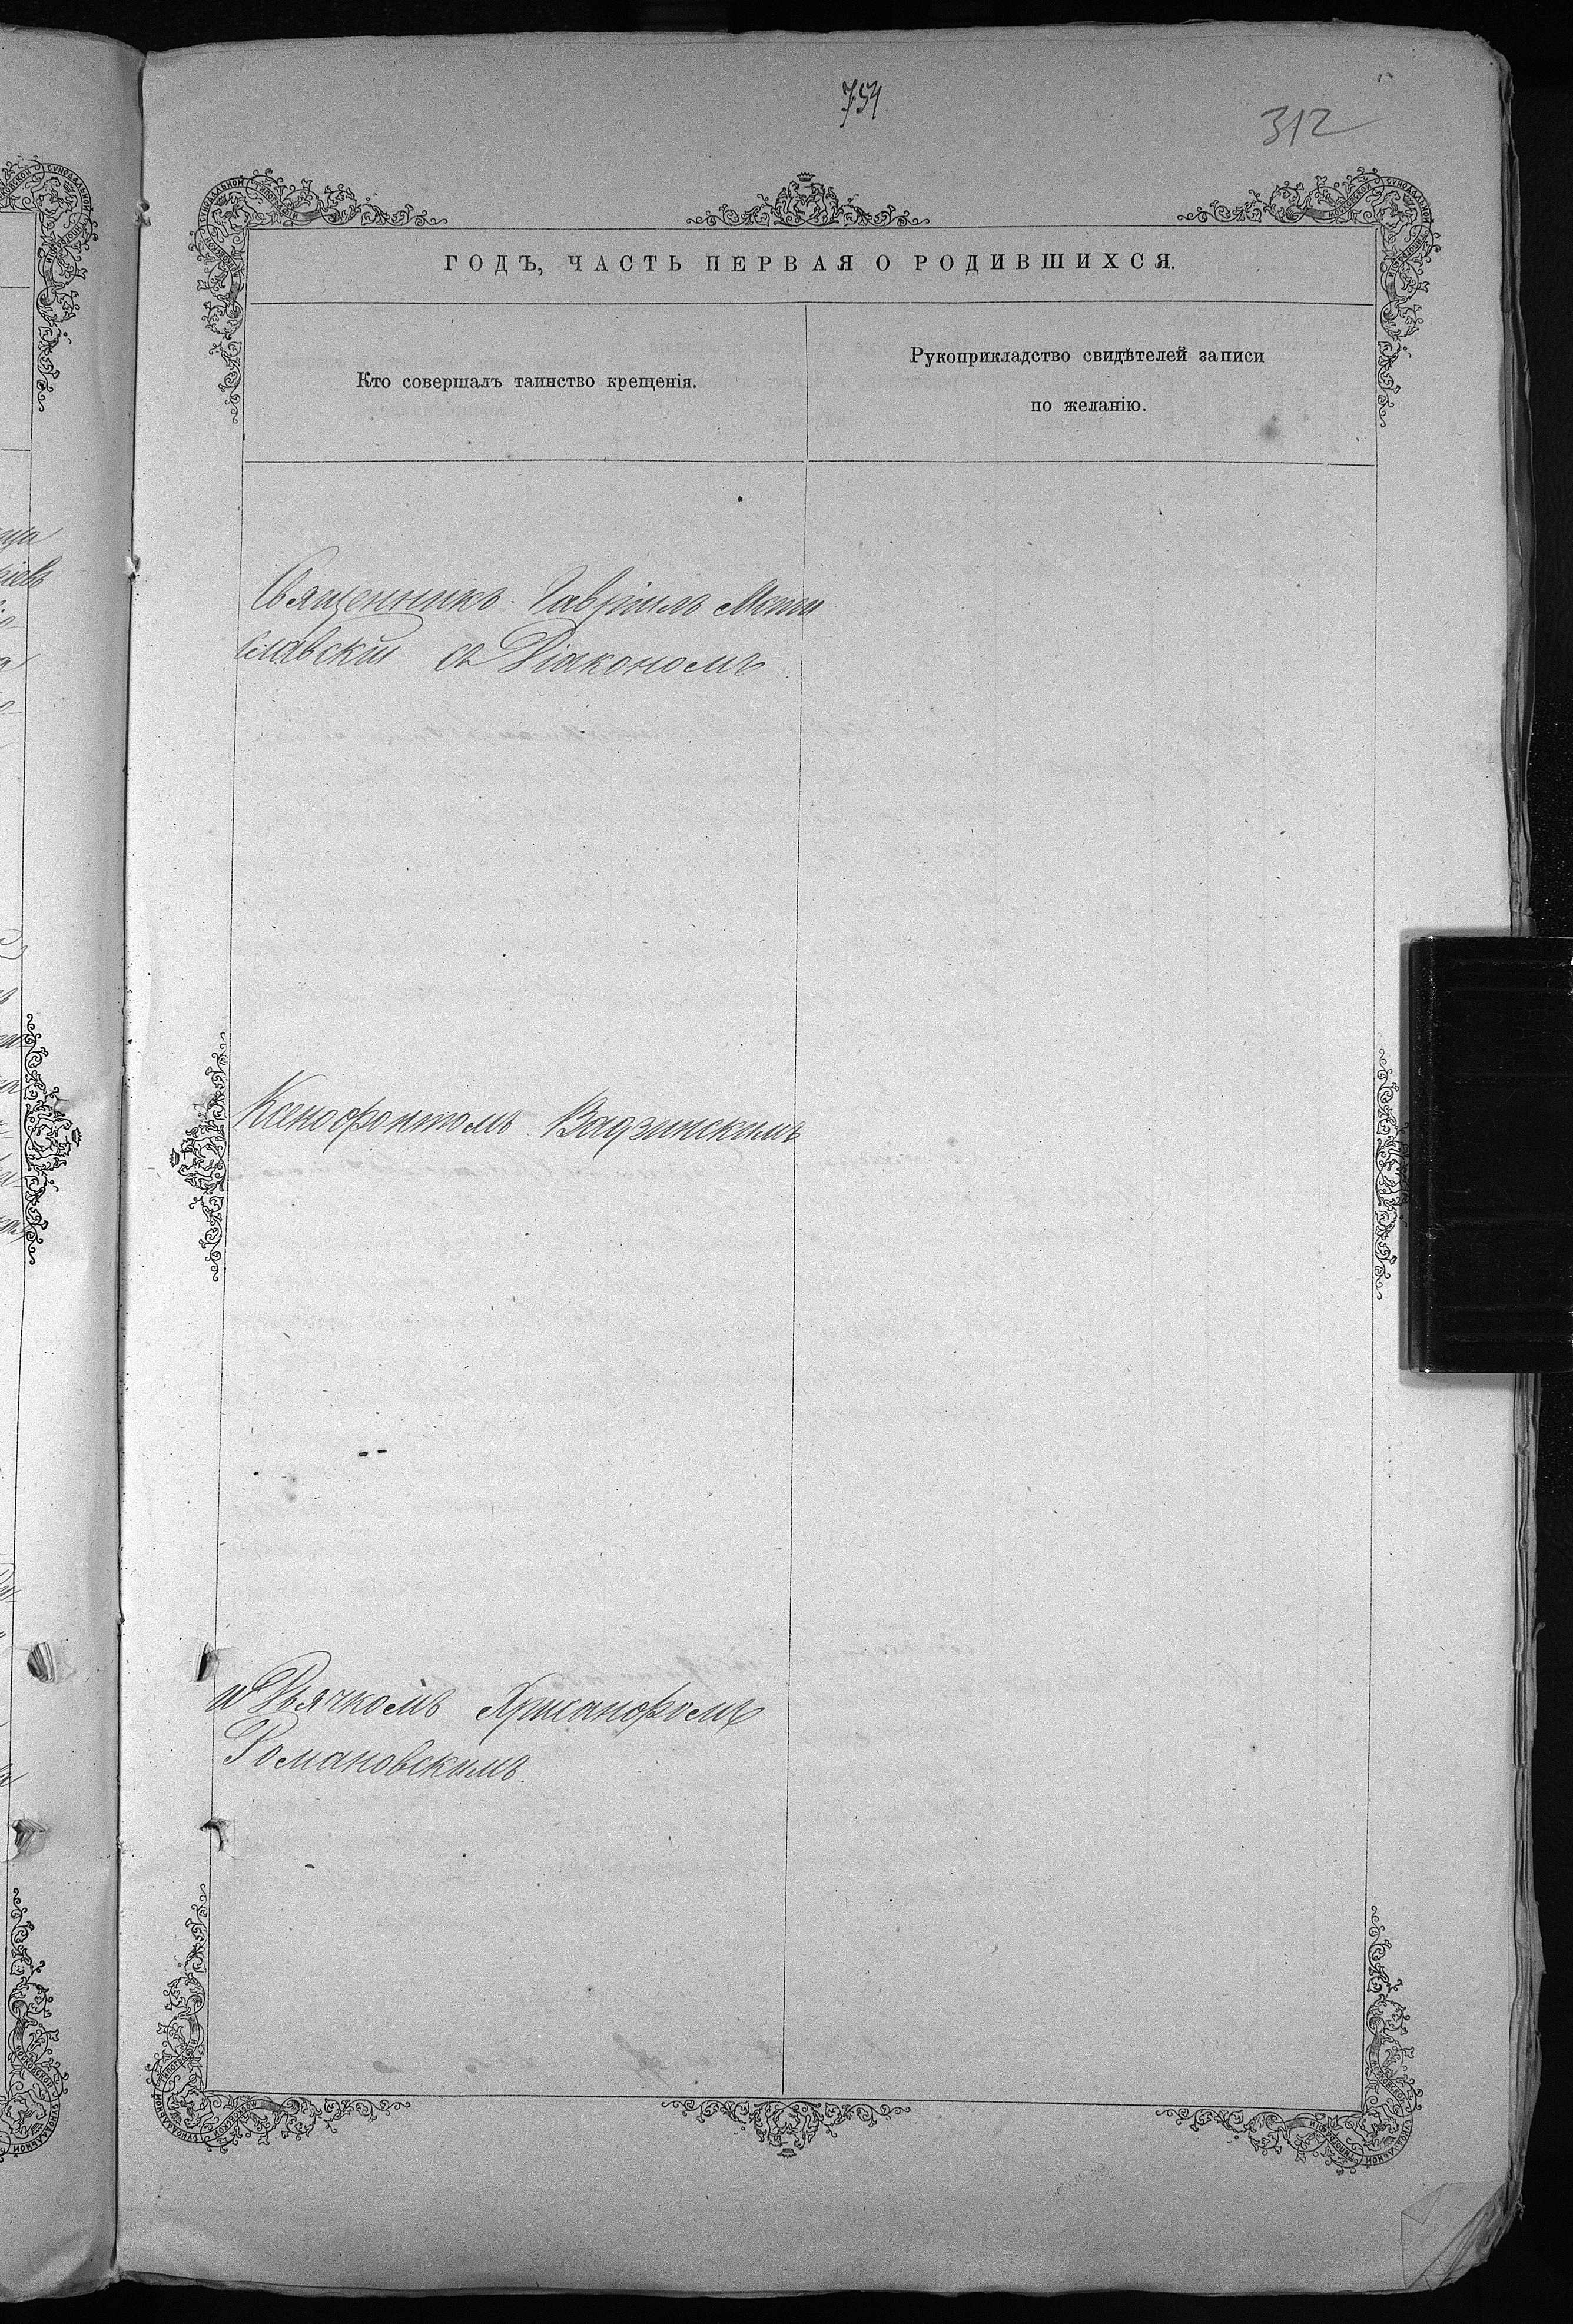 754
312
ГОДЪ, ЧАСТЬ ПЕРВАЯ О РОДИВШИХСЯ.
Кто совершалъ таинство крещенія.
Рукоприкладство свидѣтелей записи
по желанію.
Священникъ Гавріилъ Мсти
славскій съ Діакономъ
Ксенофонтомъ Вадзинскимъ
и Дьячкомъ Хрисанфомъ
Романовскимъ.